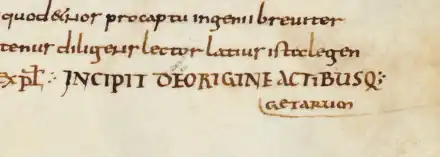 pro captu ingenii breuiter
tenus diligens lector latius ista legen
expl̄ INCIPIT DE ORIGINE ACTIBUSQ;
GETARUM